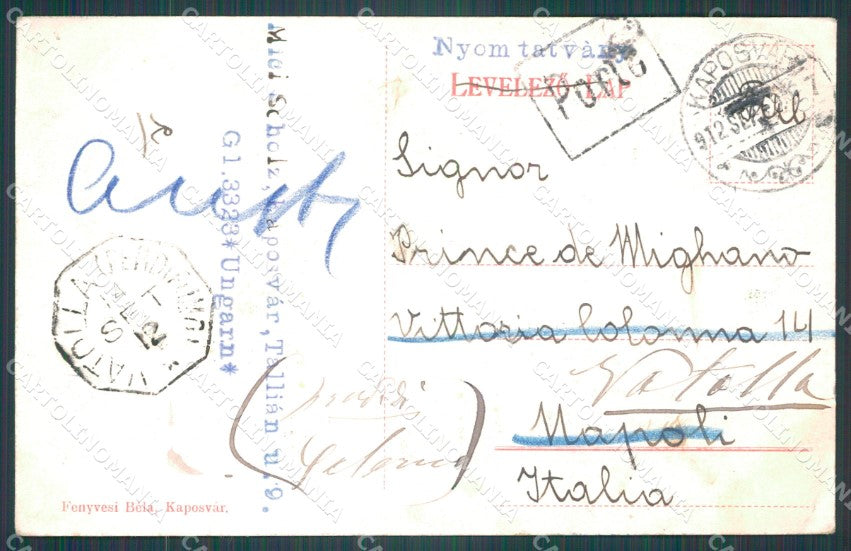 Nyomtatvány
LEVELEZŐ-LAP
PORTO
KAPOSVÁR
912 SEP
Signor
Prince de Mighano
Vittoria Colonna 14
Vatolla
Napoli
Italia
Miei Scholz, Kaposvár, Tallián u. 9.
Gl. 3323*Ungarn*
VATOLLA
Fenyvesi Béla, Kaposvár.
CARTOLINOMANIA